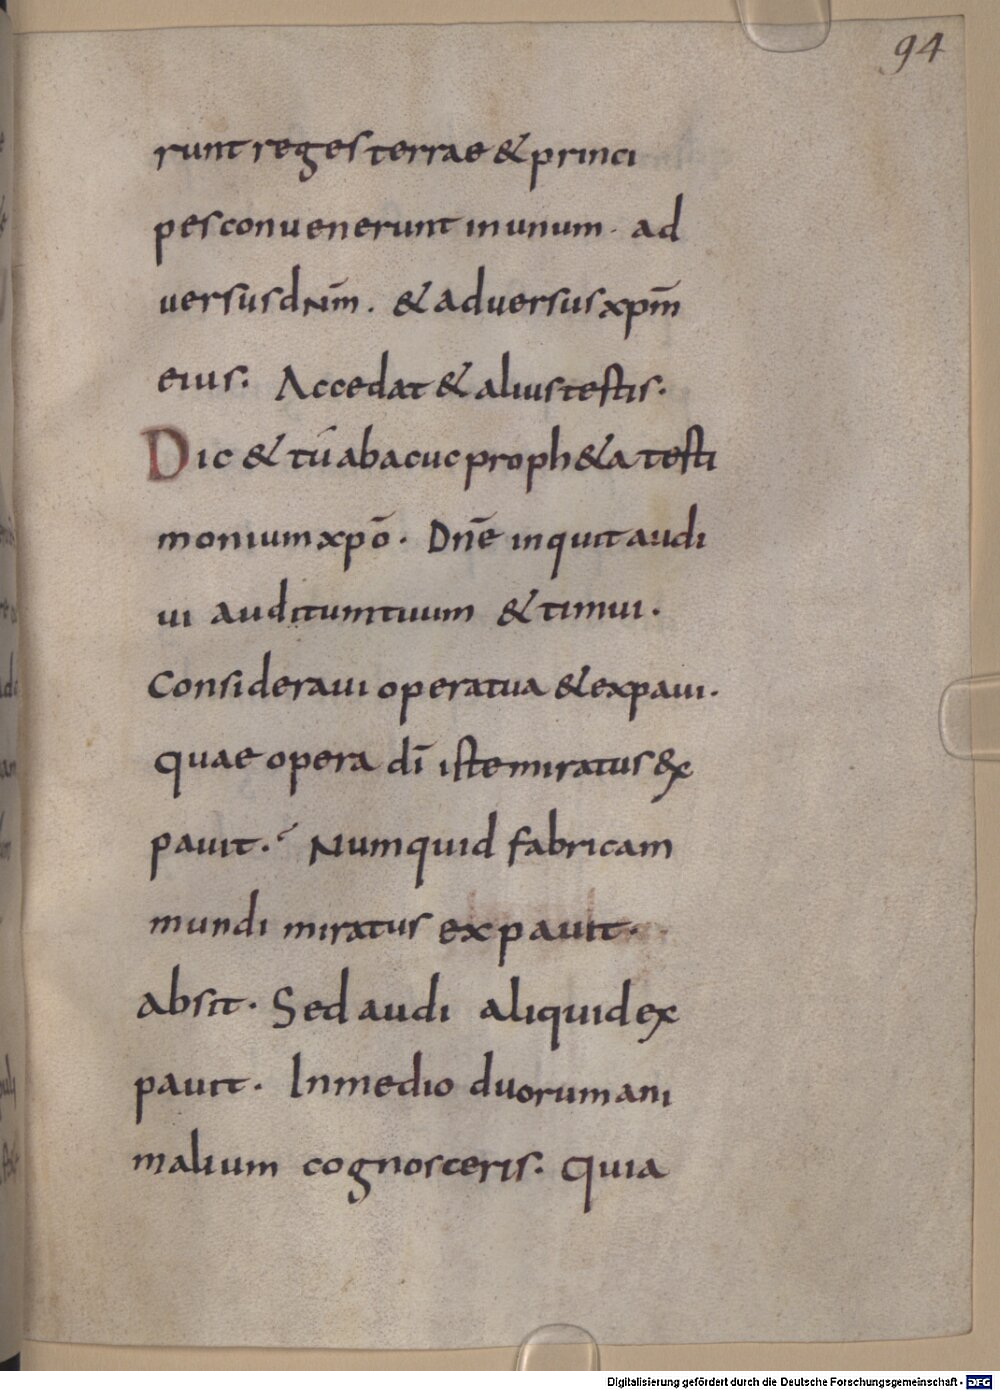 94
runt reges terrae & princi
pes conuenerunt in unum · ad
uersus dnm̄ . & aduersus xpm̄
eius : Accedat & alius testis ·
Dic & tu abacuc proph&a testi
monium xpō · Dnē inquit audi
ui auditum tuum & timui .
Consideraui opera tua & expaui ·
quae opera dī iste miratus ex
pauit .  Numquid fabricam
mundi miratus expauit ·
absit · Sed audi aliquid ex
pauit · In medio duorum ani
malium cognosceris : Quia
Digitalisierung gefördert durch die Deutsche Forschungsgemeinschaft - DFG